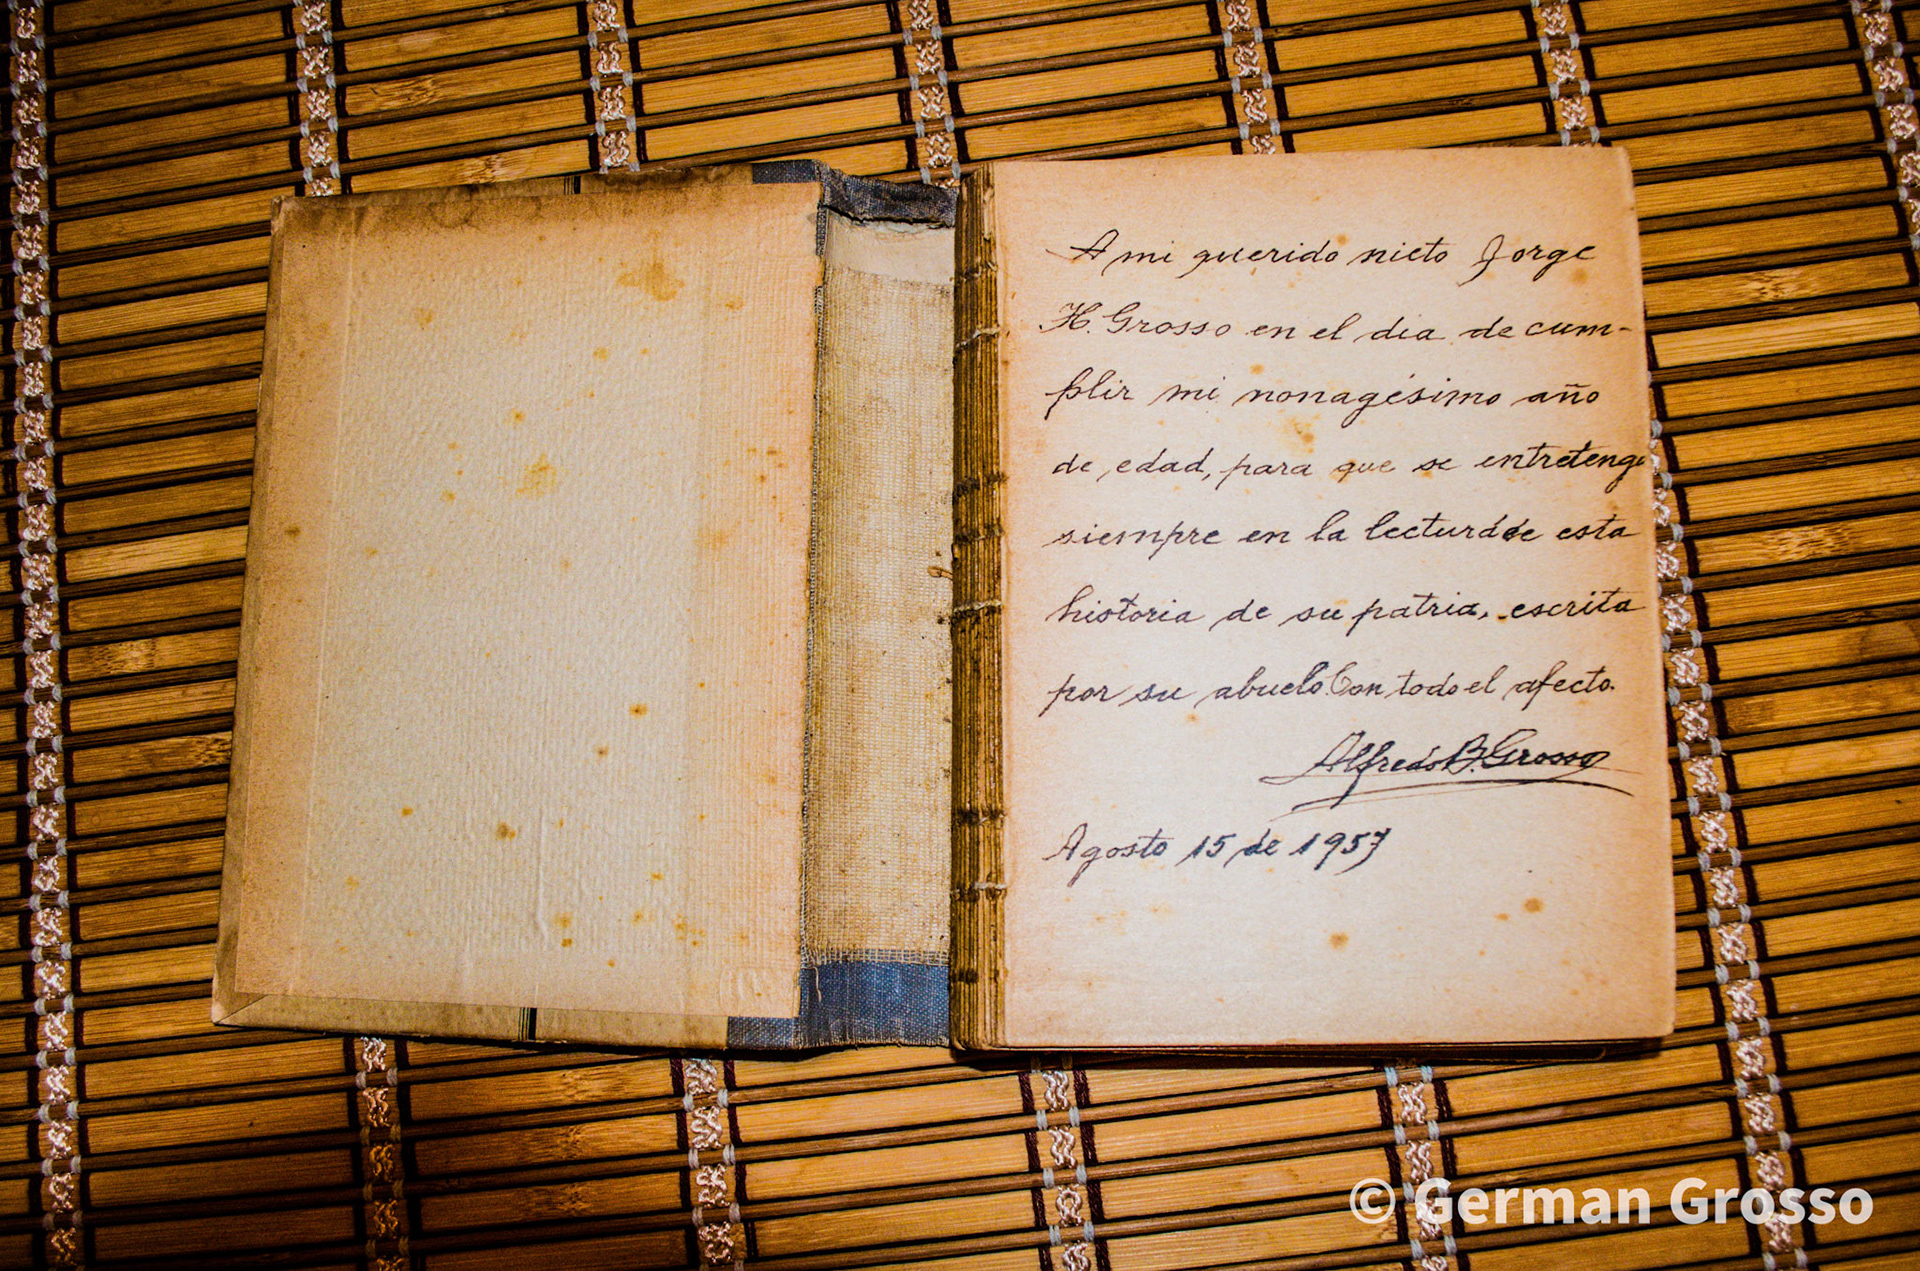 A mi querido nieto Jorge
H. Grosso en el dia de cum-
plir mi nonagésimo año
de edad, para que se entretenga
siempre en la lectura de esta
historia de su patria, escrita
por su abuelo. Con todo el afecto.
Alfredo B. Grosso
Agosto 15 de 1957
© German Grosso